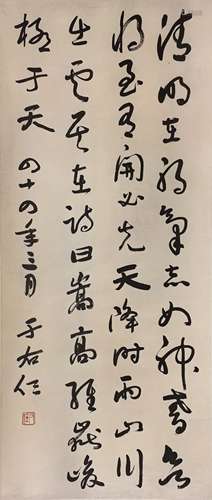 清明在躬氣志如神耆欲
將至有開必先天降時雨山川
出雲其在詩曰嵩高維嶽峻
極于天 四十四年三月 于右任